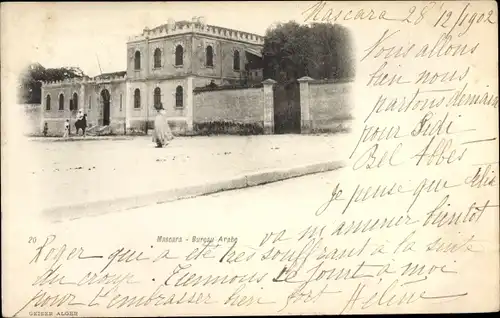 Mascara 28/12/1902
Vous allons
bien nous
partons demain
pour Sidi
Bel Abbès
Je pense que
va m'amener bientôt
20 Mascara - Bureau Arabe
Roger qui a été très souffrant à la suite
du croup. Tiennons
se joint à moi
pour t'embrasser bien fort Hélène
GEISER ALGER